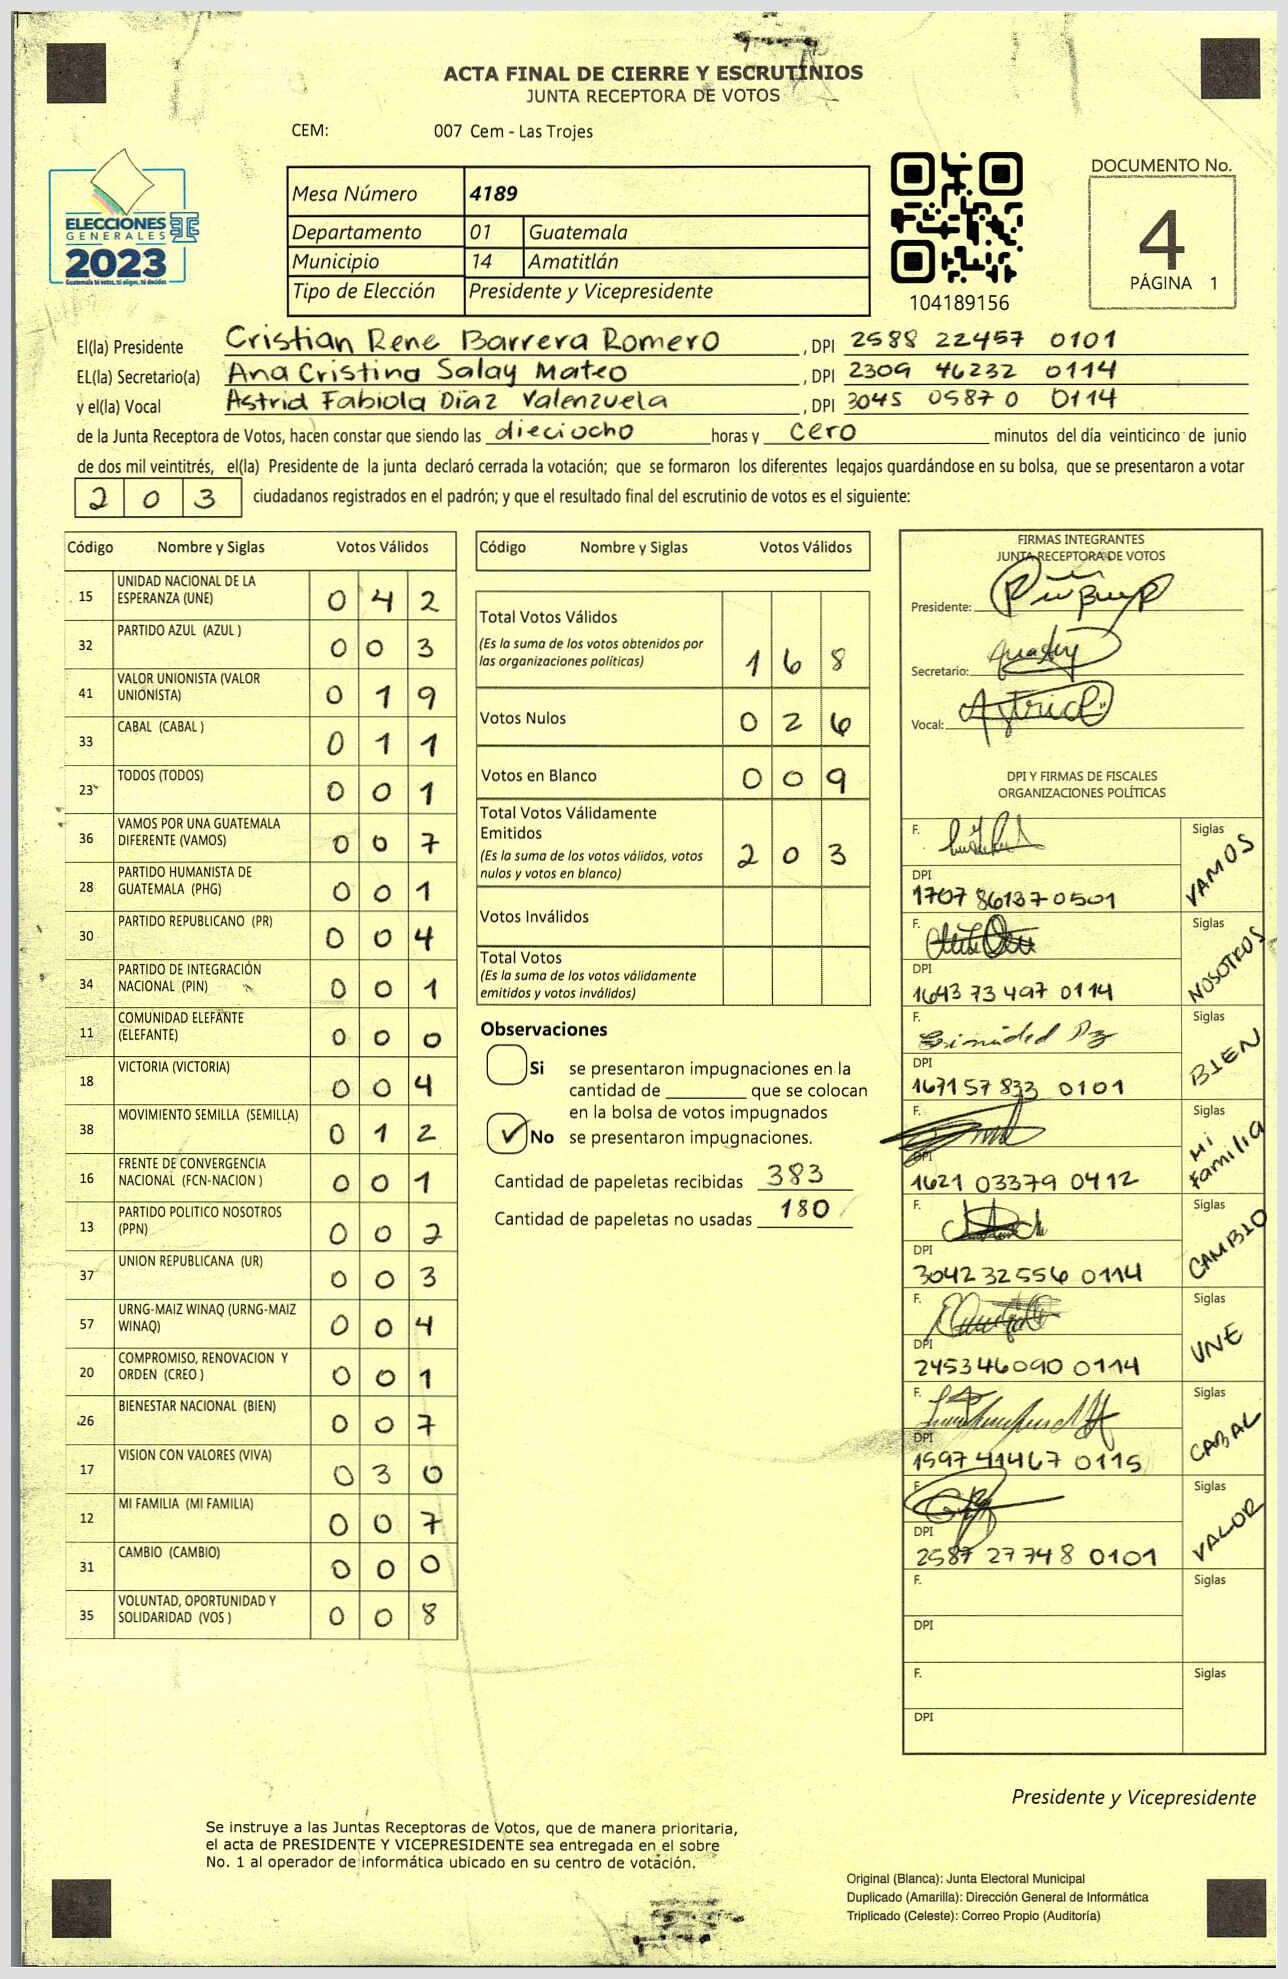 ACTA FINAL DE CIERRE Y ESCRUTINIOS
JUNTA RECEPTORA DE VOTOS
CEM: 007 Cem - Las Trojes
ELECCIONES
GENERALES
2023
Guatemala tú votas, tú eliges, tú decides
Mesa Número 4189
Departamento 01 Guatemala
Municipio 14 Amatitlán
Tipo de Elección Presidente y Vicepresidente
104189156
DOCUMENTO No.
4
PÁGINA 1
El(la) Presidente Cristian Rene Barrera Romero, DPI 2588 22457 0101
EL(la) Secretario(a) Ana Cristina Salay Mateo, DPI 2309 46232 0114
y el(la) Vocal Astrid Fabiola Díaz Valenzuela, DPI 3045 05870 0114
de la Junta Receptora de Votos, hacen constar que siendo las dieciocho horas y cero minutos del día veinticinco de junio
de dos mil veintitrés, el(la) Presidente de la junta declaró cerrada la votación; que se formaron los diferentes legajos guardándose en su bolsa, que se presentaron a votar
203 ciudadanos registrados en el padrón; y que el resultado final del escrutinio de votos es el siguiente:
Código Nombre y Siglas Votos Válidos
15 UNIDAD NACIONAL DE LA ESPERANZA (UNE) 0 4 2
32 PARTIDO AZUL (AZUL ) 0 0 3
41 VALOR UNIONISTA (VALOR UNIONISTA) 0 1 9
33 CABAL (CABAL ) 0 1 1
23 TODOS (TODOS) 0 0 1
36 VAMOS POR UNA GUATEMALA DIFERENTE (VAMOS) 0 0 7
28 PARTIDO HUMANISTA DE GUATEMALA (PHG) 0 0 1
30 PARTIDO REPUBLICANO (PR) 0 0 4
34 PARTIDO DE INTEGRACIÓN NACIONAL (PIN) 0 0 1
11 COMUNIDAD ELEFANTE (ELEFANTE) 0 0 0
18 VICTORIA (VICTORIA) 0 0 4
38 MOVIMIENTO SEMILLA (SEMILLA) 0 1 2
16 FRENTE DE CONVERGENCIA NACIONAL (FCN-NACION ) 0 0 1
13 PARTIDO POLITICO NOSOTROS (PPN) 0 0 2
37 UNION REPUBLICANA (UR) 0 0 3
57 URNG-MAIZ WINAQ (URNG-MAIZ WINAQ) 0 0 4
20 COMPROMISO, RENOVACION Y ORDEN (CREO ) 0 0 1
26 BIENESTAR NACIONAL (BIEN) 0 0 7
17 VISION CON VALORES (VIVA) 0 3 0
12 MI FAMILIA (MI FAMILIA) 0 0 7
31 CAMBIO (CAMBIO) 0 0 0
35 VOLUNTAD, OPORTUNIDAD Y SOLIDARIDAD (VOS ) 0 0 8
Código Nombre y Siglas Votos Válidos
Total Votos Válidos
(Es la suma de los votos obtenidos por
las organizaciones políticas) 1 6 8
Votos Nulos 0 2 6
Votos en Blanco 0 0 9
Total Votos Válidamente
Emitidos
(Es la suma de los votos válidos, votos
nulos y votos en blanco) 2 0 3
Votos Inválidos
Total Votos
(Es la suma de los votos válidamente
emitidos y votos inválidos)
Observaciones
Si se presentaron impugnaciones en la
cantidad de ________ que se colocan
en la bolsa de votos impugnados
✓ No se presentaron impugnaciones.
Cantidad de papeletas recibidas 383
Cantidad de papeletas no usadas 180
FIRMAS INTEGRANTES
JUNTA RECEPTORA DE VOTOS
Presidente:
Secretario:
Vocal: Astrid
DPI Y FIRMAS DE FISCALES
ORGANIZACIONES POLÍTICAS
F. Siglas VAMOS
DPI 1707 86137 0501
F. Siglas NOSOTROS
DPI 1643 73 497 0114
F. Siglas BIEN
DPI 1671 57 833 0101
F. Siglas Mi Familia
DPI 1621 03379 0412
F. Siglas CAMBIO
DPI 3042 32556 0114
F. Siglas UNE
DPI 2453 46090 0114
F. Siglas CABAL
DPI 1597 41467 0115
F. Siglas VALOR
DPI 2587 27748 0101
F. Siglas
DPI
F. Siglas
DPI
Presidente y Vicepresidente
Se instruye a las Juntas Receptoras de Votos, que de manera prioritaria,
el acta de PRESIDENTE Y VICEPRESIDENTE sea entregada en el sobre
No. 1 al operador de informática ubicado en su centro de votación.
Original (Blanca): Junta Electoral Municipal
Duplicado (Amarilla): Dirección General de Informática
Triplicado (Celeste): Correo Propio (Auditoría)